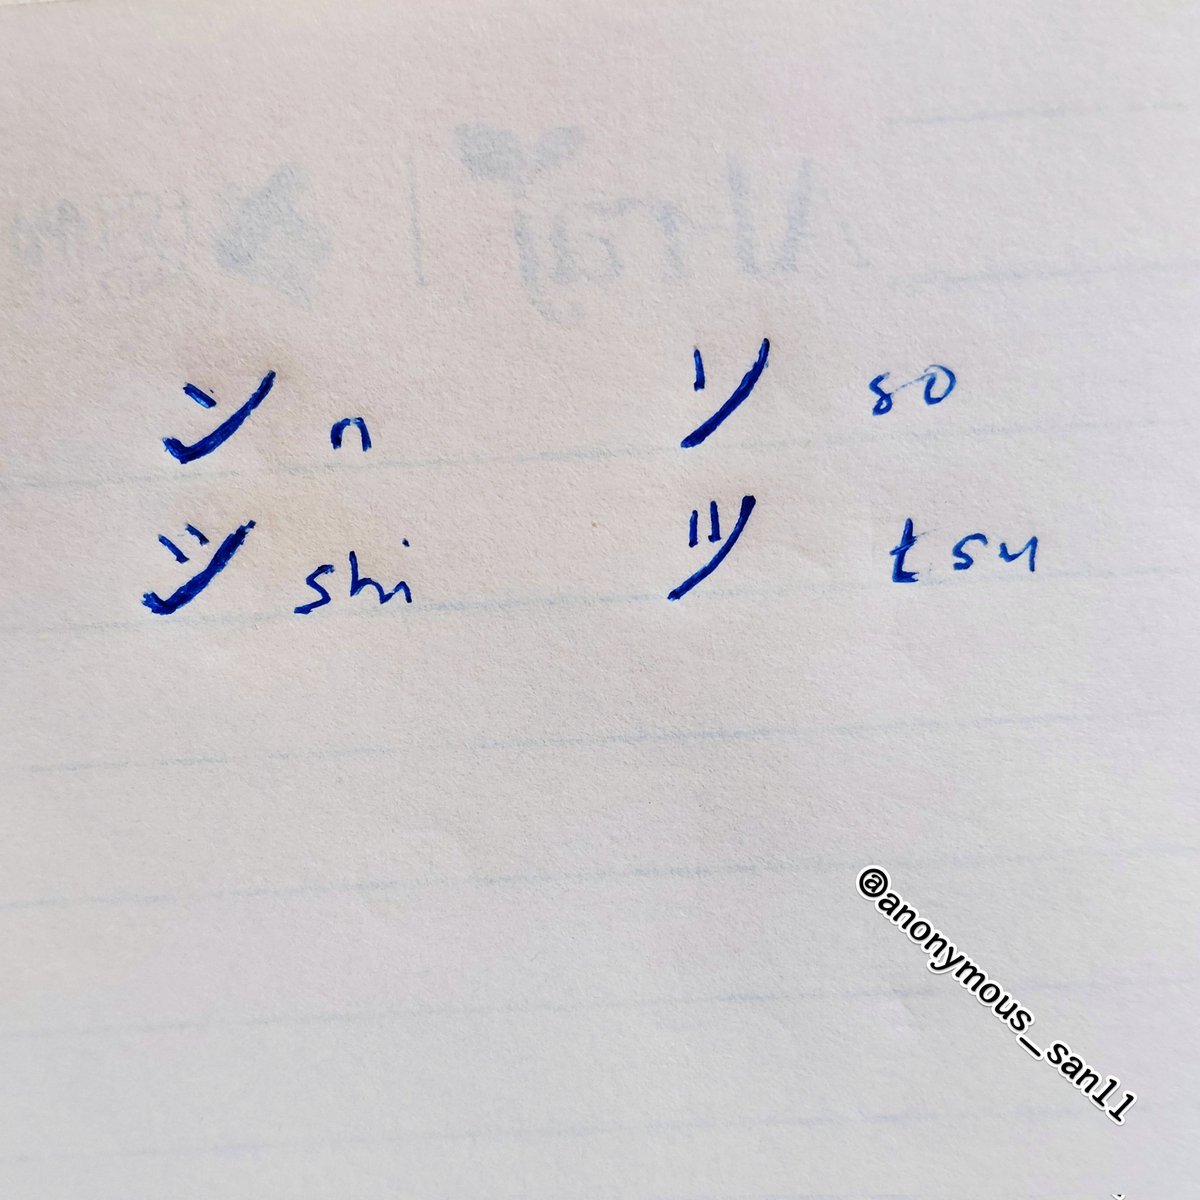 ン n ソ so
シ shi ツ tsu
@anonymous_san11